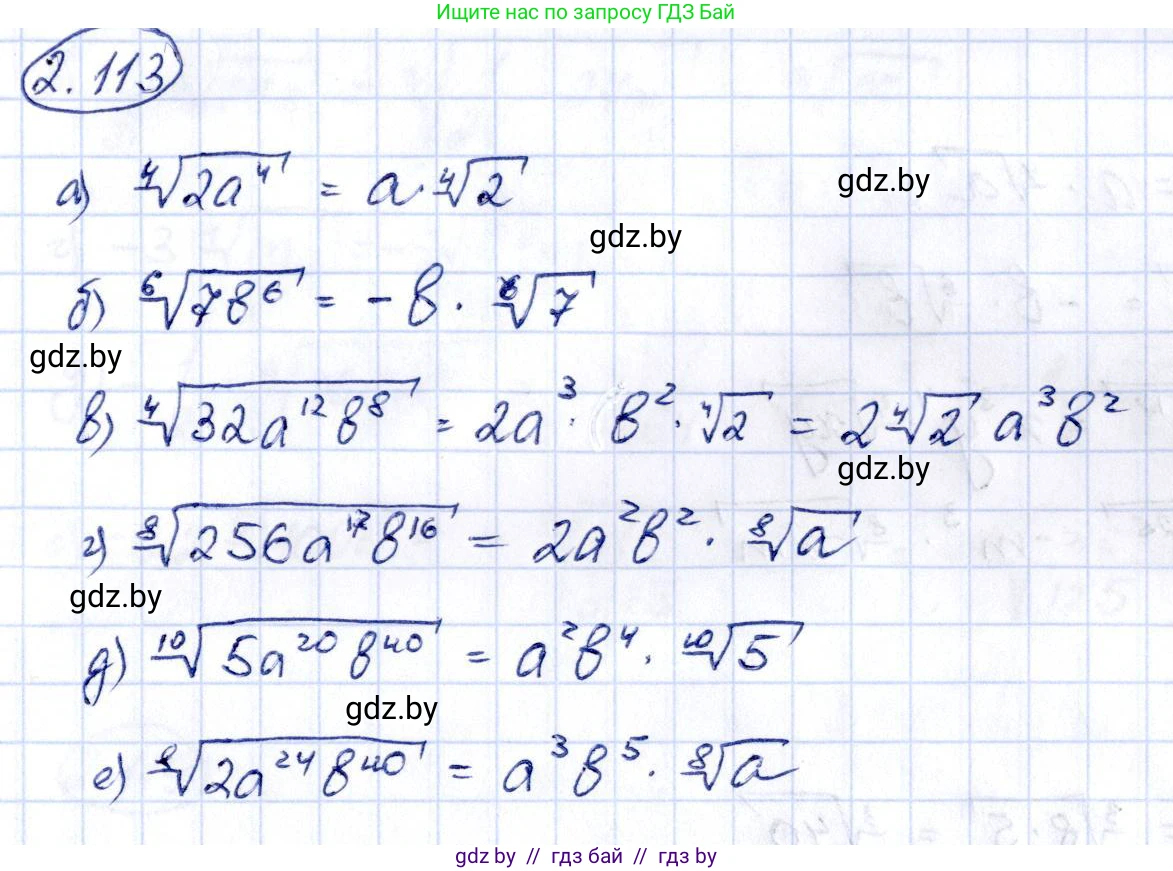 Ищите нас по запросу ГДЗ Бай
2.113
а) ⁴√(2a⁴) = a·⁴√2
gdz.by
gdz.by
б) ⁶√(7b⁶) = -b·⁶√7
gdz.by
в) ⁴√(32a¹²b⁸) = 2a³·b²·⁴√2 = 2⁴√2 a³b²
gdz.by
г) ⁸√(256a¹⁷b¹⁶) = 2a²b²·⁸√a
gdz.by
д) ¹⁰√(5a²⁰b⁴⁰) = a²b⁴·¹⁰√5
gdz.by
е) ⁸√(2a²⁴b⁴⁰) = a³b⁵·⁸√a
gdz.by // гдз бай // гдз by